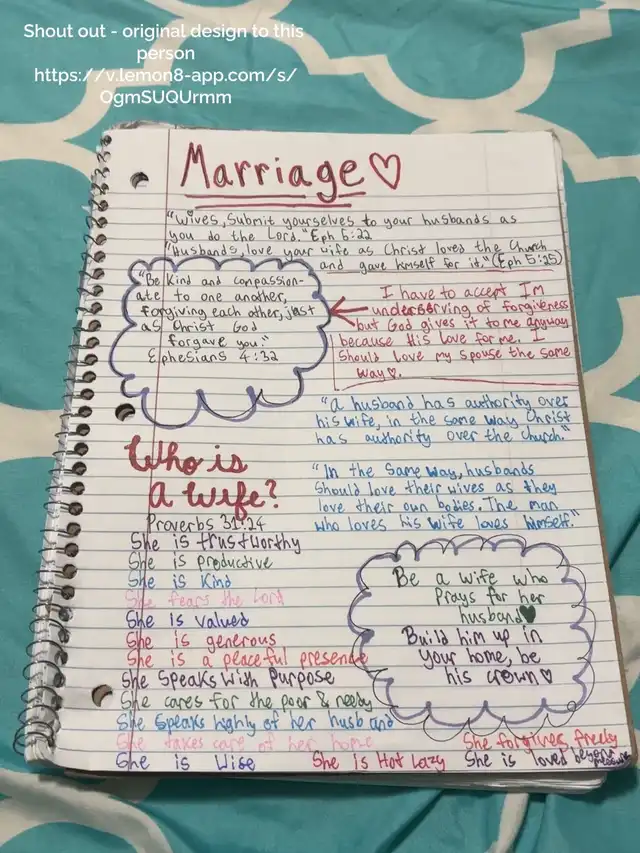 Shout out - original design to this
person
https://v.lemon8-app.com/s/
OgmSUQUrmm
Marriage♡
"Wives, Submit yourselves to your husbands as
you do the Lord." Eph 5:22
"Husbands, love your wife as Christ loved the Church
and gave himself for it." (Eph 5:25)
"Be Kind and compassion-
ate to one another,
forgiving each other, just
as Christ God
forgave you."
Ephesians 4:32
I have to accept Im
underserving of forgiveness
but God gives it to me anyway
because His love for me. I
Should love my spouse the same
way♡.
"A husband has authority over
his wife, in the same way Christ
has authority over the church."
"In the Same way, husbands
Should love their wives as they
love their own bodies. The man
who loves his wife loves himself."
Who is
a Wife?
Proverbs 31:24
She is trustworthy
She is productive
She is Kind
She fears the Lord
She is valued
She is generous
She is a peaceful presence
She Speaks With Purpose
She cares for the poor & needy
She Speaks highly of her husband
She takes care of her home
She is Wise
Be a wife who
Prays for her
husband♥
Build him up in
your home, be
his crown♡
She forgives freely
She is Not Lazy
She is loved beyond measure